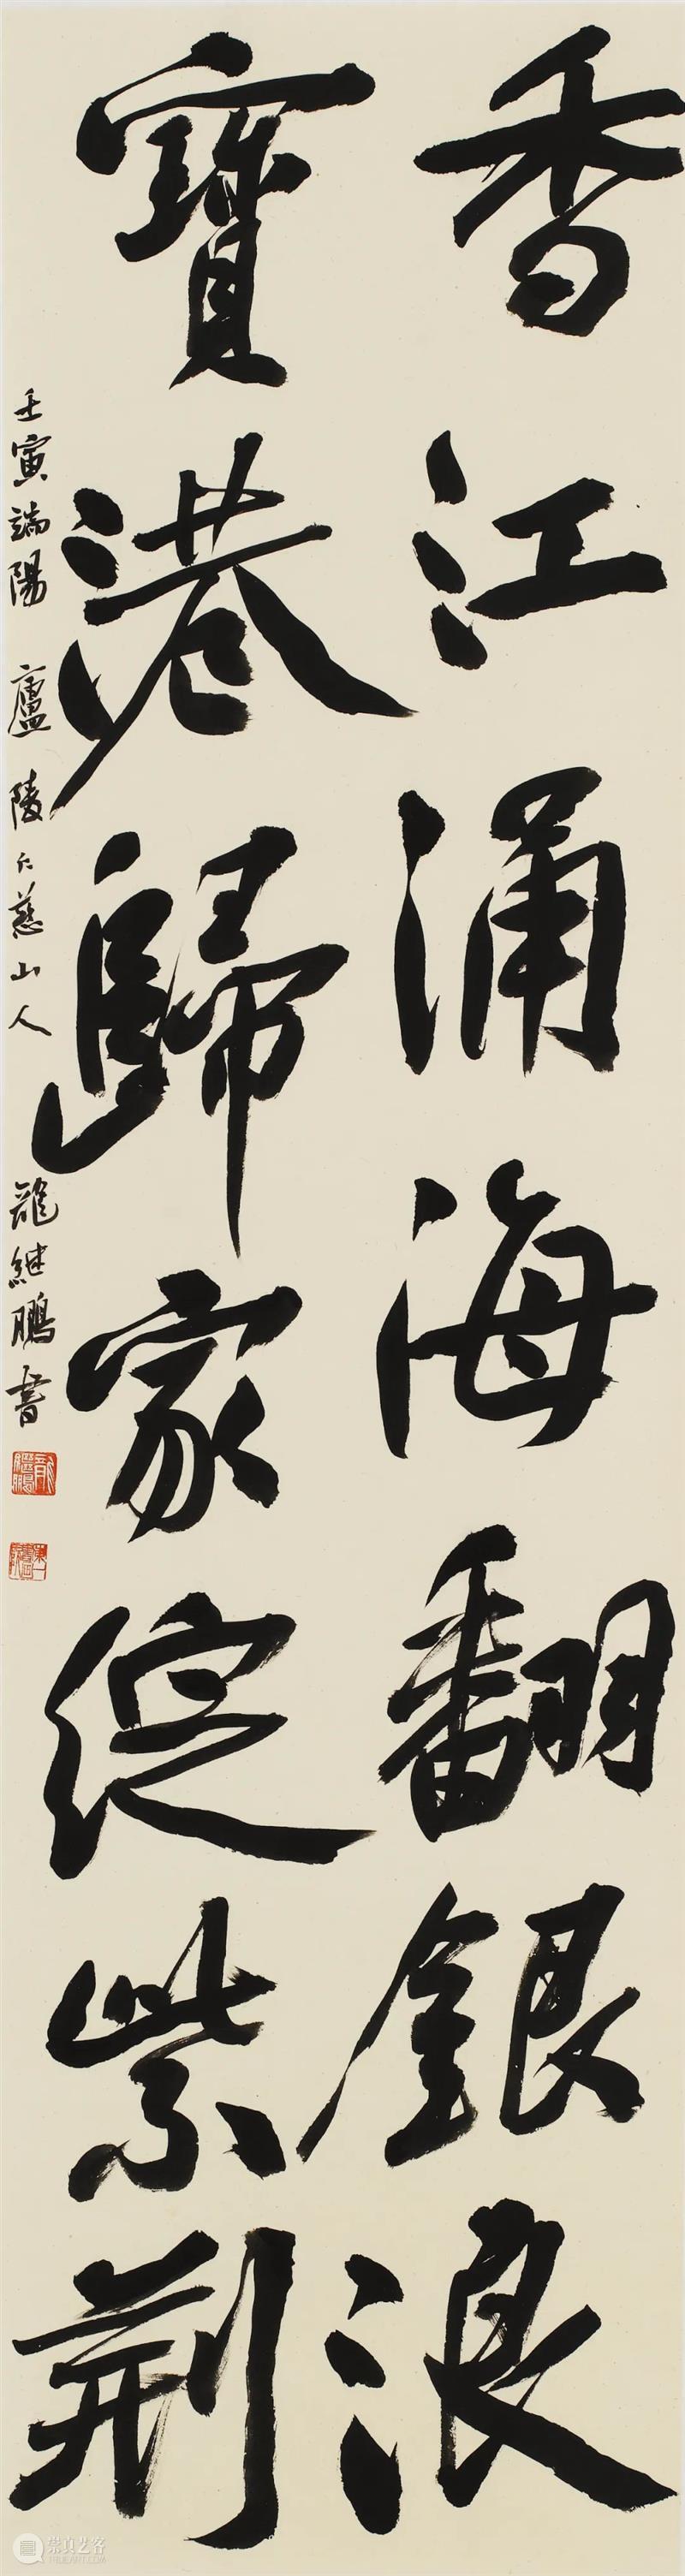 香江涌海翻銀浪
寶港歸家綻紫荆
壬寅端陽廬陵仁慈山人龍继鵬書
崇真艺客